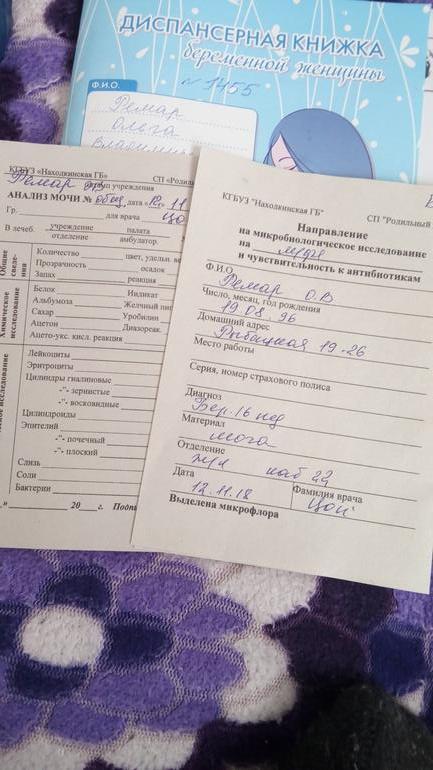 ДИСПАНСЕРНАЯ КНИЖКА
беременной женщины
№ 1455
Ф.И.О.
Ремар
Ольга
КГБУЗ «Находкинская ГБ»
СП «Родиль
Ремар
учреждения
АНАЛИЗ МОЧИ № общ, дата «12» 11
Гр. для врача Цо
В лечеб. учреждение палата
отделение амбулатор.
Общие сведе-ния
Количество цвет, удельн. ве
Прозрачность осадок
Запах реакция
Химическое исследование
Белок Индикат
Альбумоза Желчный пи
Сахар Уробилин
Ацетон Диазореак.
Ацето-укс. кисл. реакция
ское исследование
Лейкоциты
Эритроциты
Цилиндры гиалиновые
-"- зернистые
-"- восковидные
Цилиндроиды
Эпителий
-"- почечный
-"- плоский
Слизь
Соли
Бактерии
" 20 г. Подпи
КГБУЗ "Находкинская ГБ"
СП "Родильный
Направление
на микробиологическое исследование
на
и чувствительность к антибиотикам
Ф.И.О. Ремар О.В
Число, месяц, год рождения
19.08.96
Домашний адрес
Рыбацкая 19-26
Место работы
Серия, номер страхового полиса
Диагноз
Бер. 16 нед
Материал
моча
Отделение
ж/к каб 22
Дата
12.11.18
Фамилия врача
Цой
Выделена микрофлора